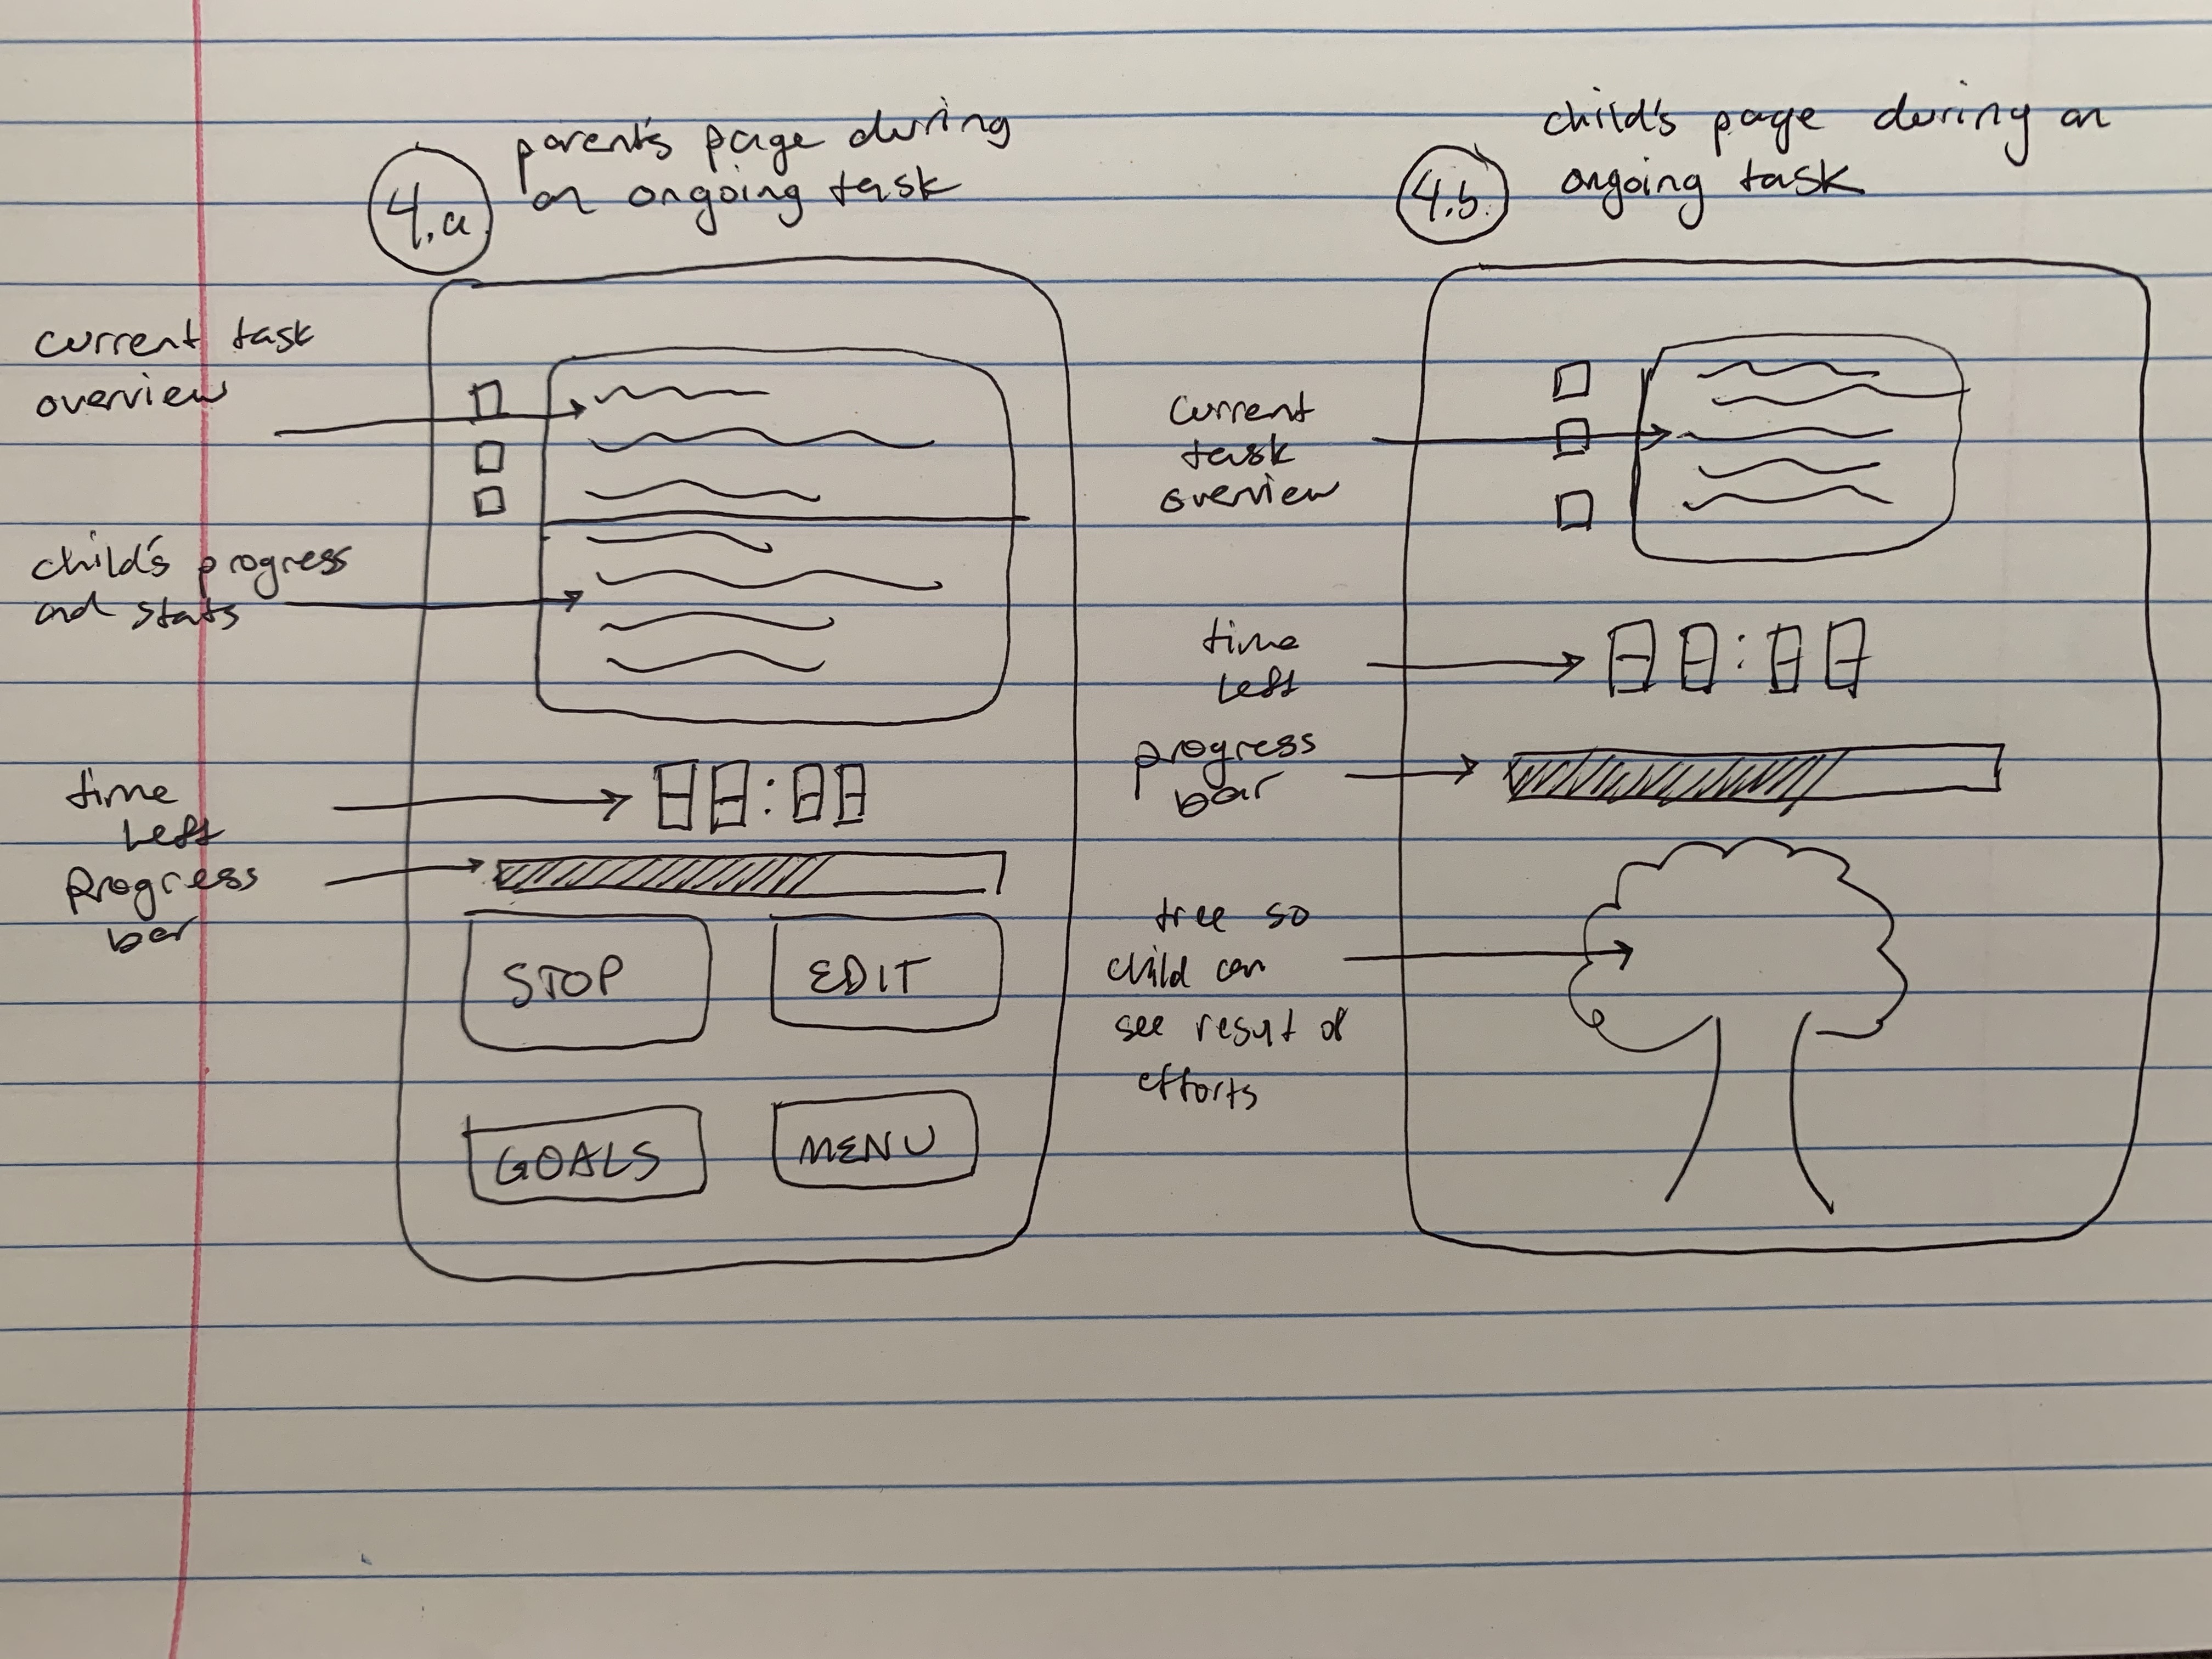 4.a
parent's page during
an ongoing task
current task
overview
child's progress
and stats
time
left
Progress
bar
88:88
STOP
EDIT
GOALS
MENU
4.b.
child's page during an
ongoing task
current
task
overview
time
left
progress
bar
tree so
child can
see result of
efforts
88:88